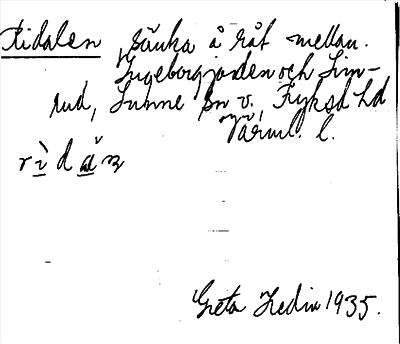 Ridalen, sänka å råt mellan
Ingeborgjorden och Sim-
rud, Sunne sn v. Fryksd hd
Värml. l.
rìdăn
Greta Hedin 1935.